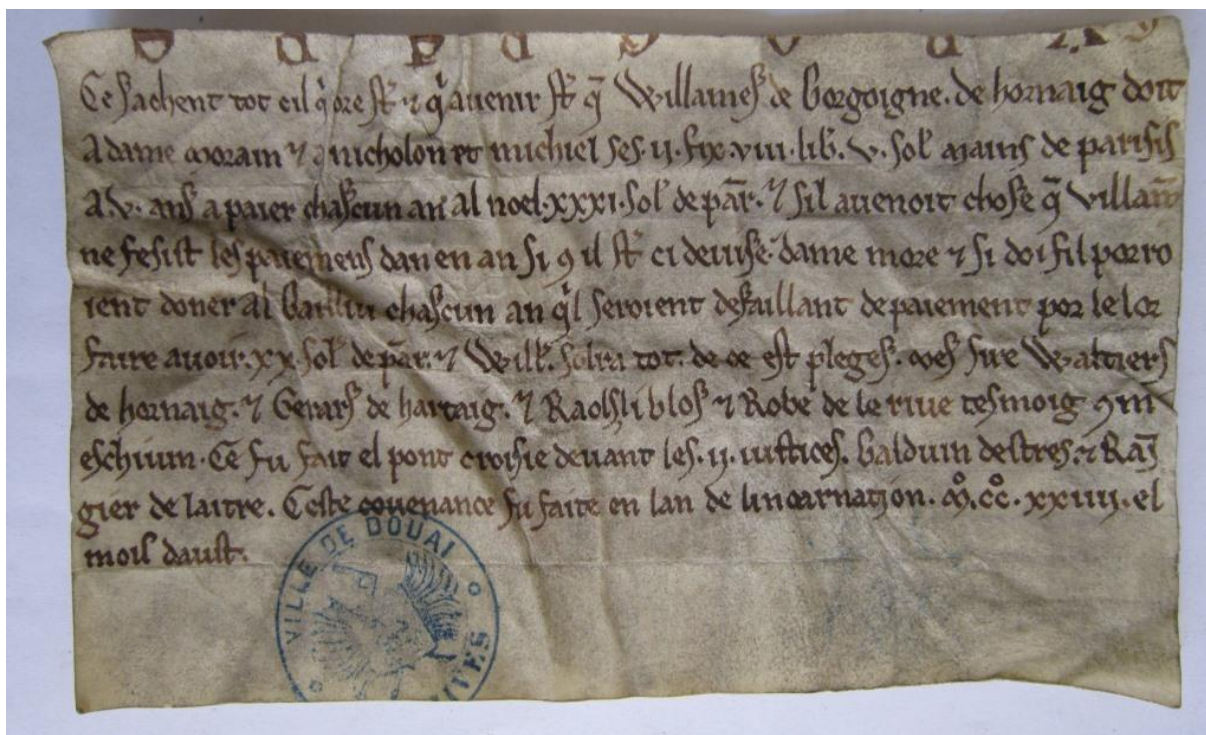 Ce sachent tot cil q̄ ore st̄ ⁊ q̄ avenir st̄ q̄ Willaumes de Borgoigne. de hornaig doit
A dame moram ⁊ a nicholon et michiel ses .ij. fix .viii. lib̄. v. sol̄ mains de parisis
A .v. ans a paier chascun an al noel .xxxi. sol̄ de par̄. ⁊ sil avenoit chose q̄ Villam̄
ne fesist les paiemens dan en an si ꝯ il st̄ ci devise. dame more ⁊ si doi fil porro
ient doner al Bailliu chascun an q̄l seroient defaillant de paiement por le lor
faire avoir .xx sol̄ de par̄. ⁊ Will̄. solra tot. de ce est pleges. mes sire Waltiers
de hornaig. ⁊ Gerars de hartaig. ⁊ Raols li blos ⁊ Robe de le rive tesmoig ꝯm
eschivin. Ce fu fait el pont croisie devant les .ij. iustices. balduin destrees. ⁊ Ran̄
gier de laitre. Ceste covenance fu faite en lan de lincarnation. m̊. cc̊. xxiiij. el
mois daust.
VILLE DE DOUAI